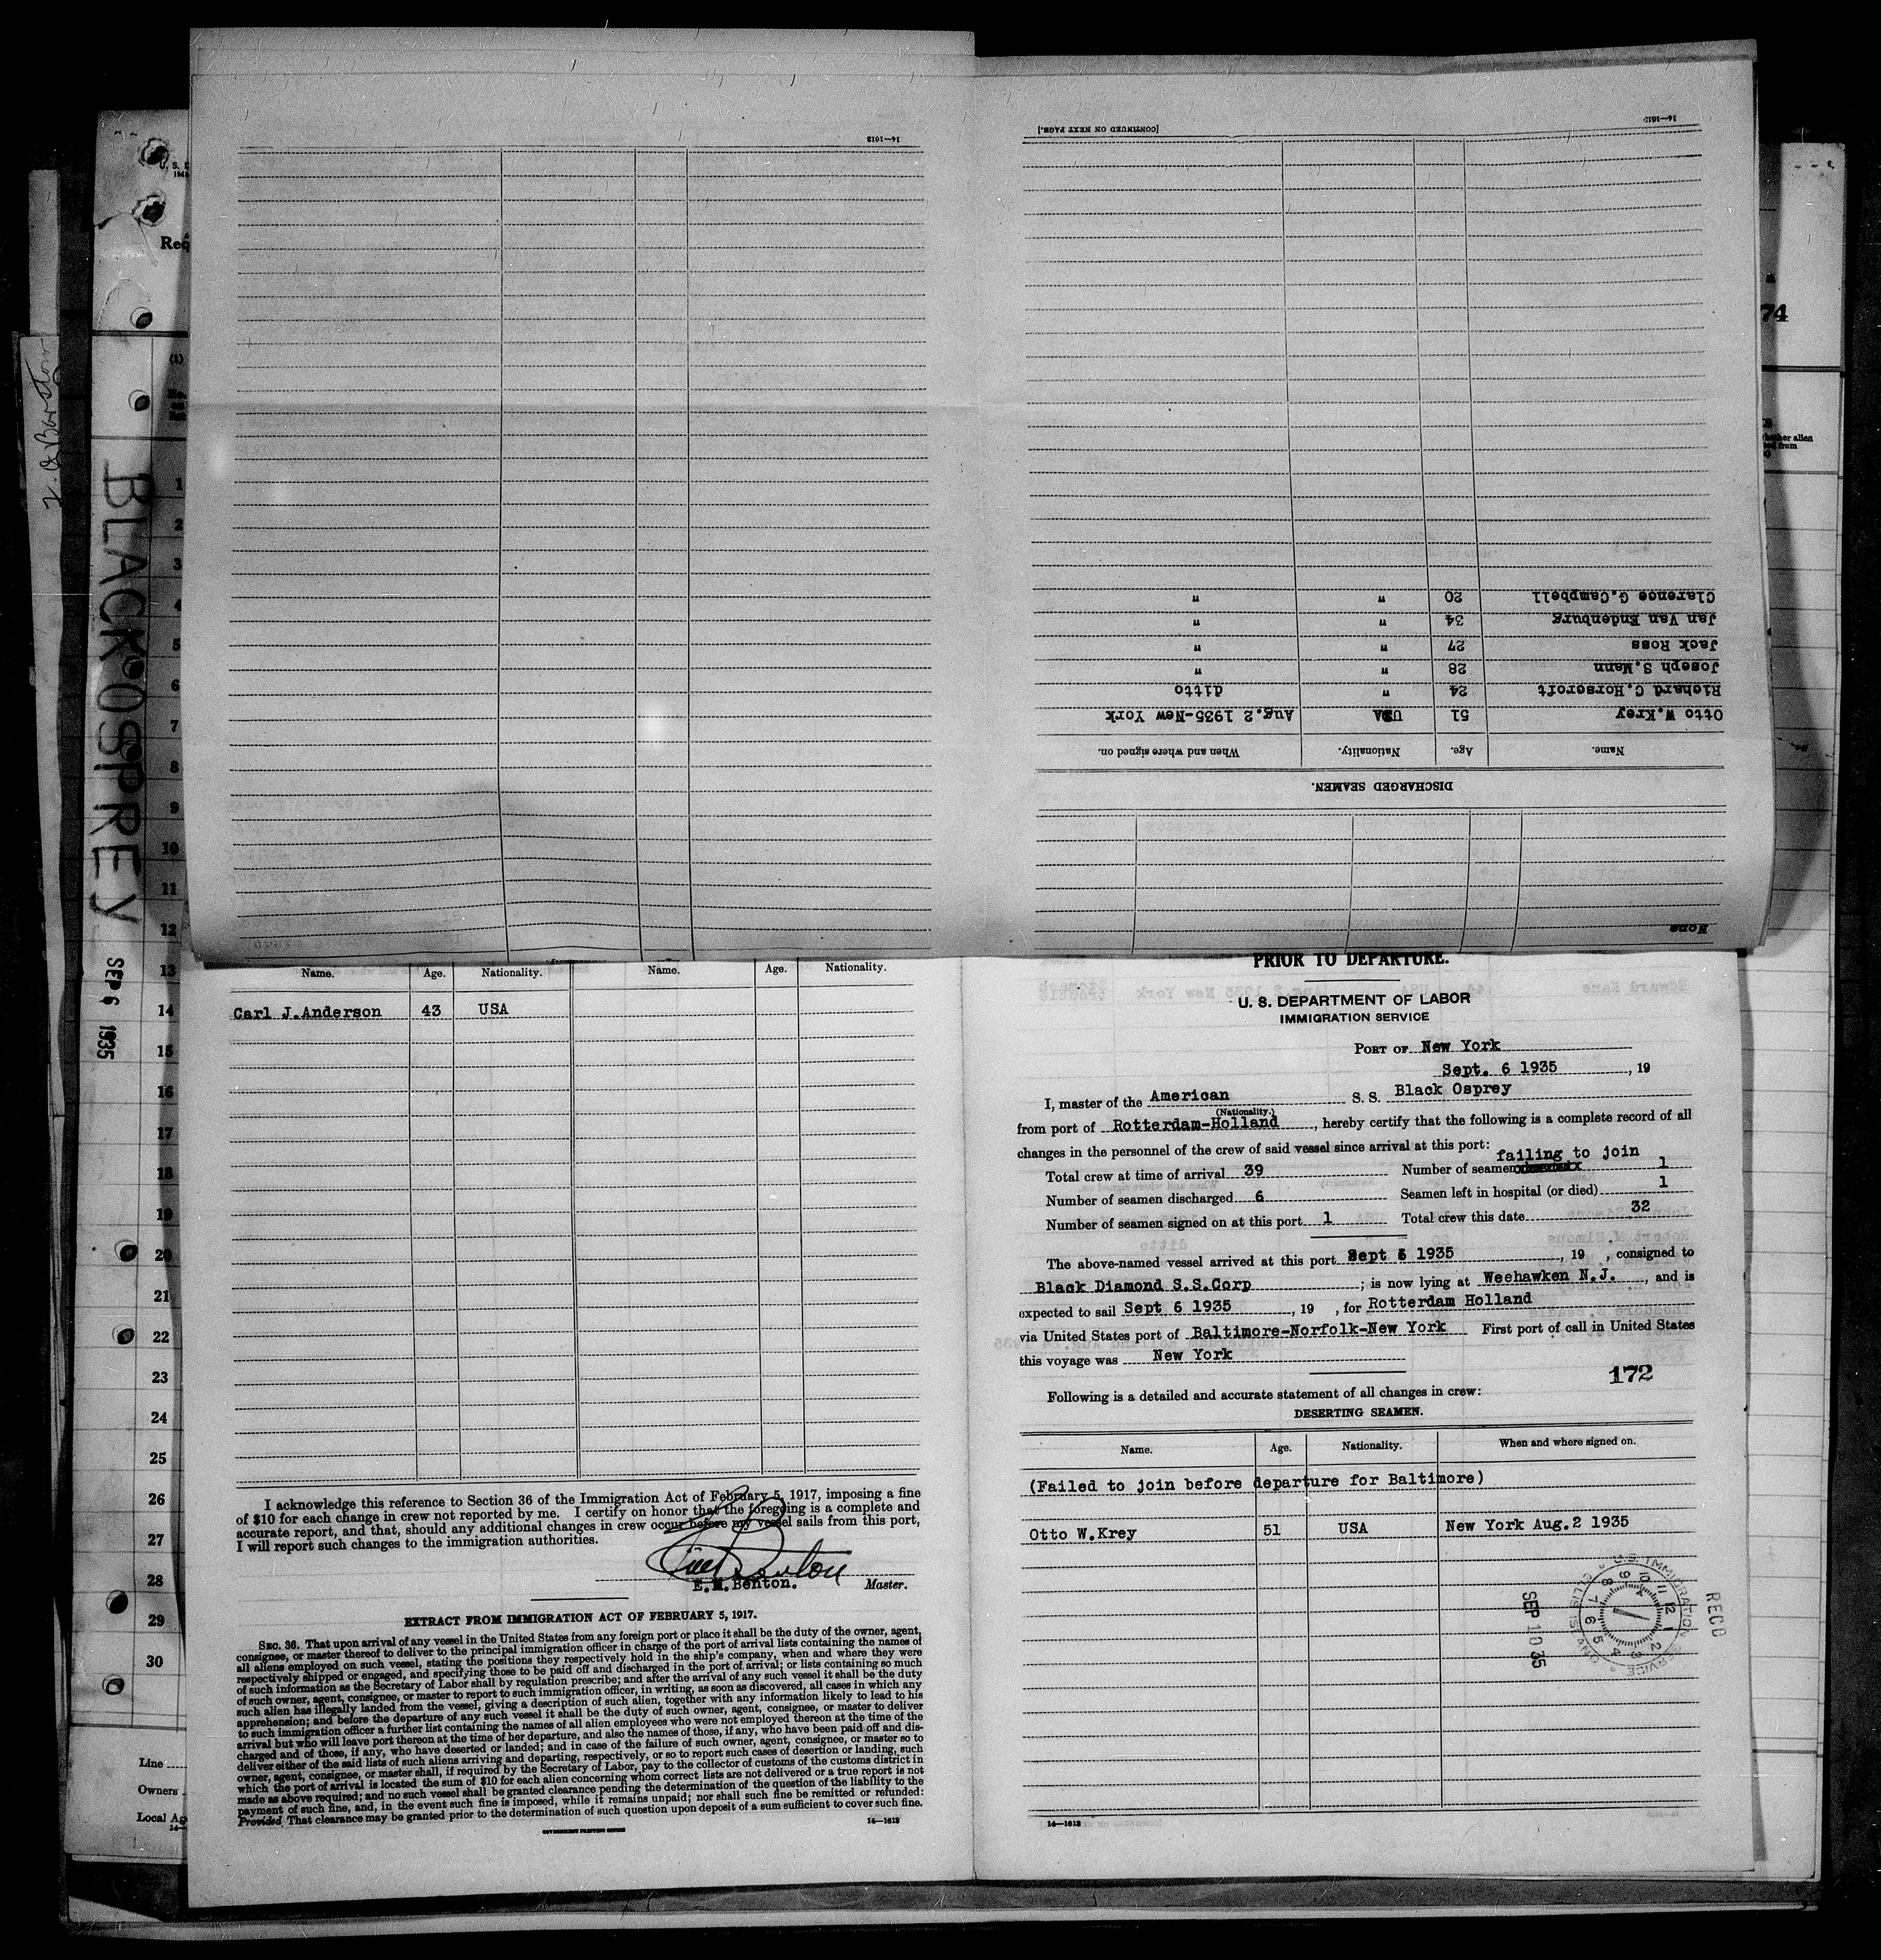 14—1613
[CONTINUED ON NEXT PAGE.]
14—1613
None
DISCHARGED SEAMEN.
Name. Age. Nationality. When and where signed on.
Otto W.Krey 51 USA Aug.2 1935-New York
Richard C.Horscroft 24 " ditto
Joseph S.Mann 28 " "
Jack Ross 27 " "
Jan Van Endenburg 34 " "
Clarence G.Campbell 20 " "
BLACK OSPREY
SEP 6 1935
1
2
3
4
5
6
7
8
9
10
11
12
13
14
15
16
17
18
19
20
21
22
23
24
25
26
27
28
29
30
Line
Owners
Local Ag
74
Name. Age. Nationality. Name. Age. Nationality.
Carl J.Anderson 43 USA
I acknowledge this reference to Section 36 of the Immigration Act of February 5, 1917, imposing a fine
of $10 for each change in crew not reported by me. I certify on honor that the foregoing is a complete and
accurate report, and that, should any additional changes in crew occur before my vessel sails from this port,
I will report such changes to the immigration authorities.
E.M.Benton. Master.
EXTRACT FROM IMMIGRATION ACT OF FEBRUARY 5, 1917.
SEC. 36. That upon arrival of any vessel in the United States from any foreign port or place it shall be the duty of the owner, agent,
consignee, or master thereof to deliver to the principal immigration officer in charge of the port of arrival lists containing the names of
all aliens employed on such vessel, stating the positions they respectively hold in the ship's company, when and where they were
respectively shipped or engaged, and specifying those to be paid off and discharged in the port of arrival; or lists containing so much
of such information as the Secretary of Labor shall by regulation prescribe; and after the arrival of any such vessel it shall be the duty
of such owner, agent, consignee, or master to report to such immigration officer, in writing, as soon as discovered, all cases in which any
such alien has illegally landed from the vessel, giving a description of such alien, together with any information likely to lead to his
apprehension; and before the departure of any such vessel it shall be the duty of such owner, agent, consignee, or master to deliver
to such immigration officer a further list containing the names of all alien employees who were not employed thereon at the time of the
arrival but who will leave port thereon at the time of her departure, and also the names of those, if any, who have been paid off and dis-
charged and of those, if any, who have deserted or landed; and in case of the failure of such owner, agent, consignee, or master so to
deliver either of the said lists of such aliens arriving and departing, respectively, or so to report such cases of desertion or landing, such
owner, agent, consignee, or master shall, if required by the Secretary of Labor, pay to the collector of customs of the customs district in
which the port of arrival is located the sum of $10 for each alien concerning whom correct lists are not delivered or a true report is not
made as above required; and no such vessel shall be granted clearance pending the determination of the question of the liability to the
payment of such fine, and, in the event such fine is imposed, while it remains unpaid; nor shall such fine be remitted or refunded:
Provided, That clearance may be granted prior to the determination of such question upon deposit of a sum sufficient to cover such fine.
GOVERNMENT PRINTING OFFICE 14—1613
PRIOR TO DEPARTURE.
U. S. DEPARTMENT OF LABOR
IMMIGRATION SERVICE
PORT OF New York
Sept. 6 1935, 19
I, master of the American S. S. Black Osprey
(Nationality.)
from port of Rotterdam-Holland, hereby certify that the following is a complete record of all
changes in the personnel of the crew of said vessel since arrival at this port:
Total crew at time of arrival 39 Number of seamen failing to join 1
Number of seamen discharged 6 Seamen left in hospital (or died) 1
Number of seamen signed on at this port 1 Total crew this date 32
The above-named vessel arrived at this port Sept 5 1935, 19 , consigned to
Black Diamond S.S.Corp ; is now lying at Weehawken N.J. , and is
expected to sail Sept 6 1935 , 19 , for Rotterdam Holland
via United States port of Baltimore-Norfolk-New York First port of call in United States
this voyage was New York
172
Following is a detailed and accurate statement of all changes in crew:
DESERTING SEAMEN.
Name. Age. Nationality. When and where signed on.
(Failed to join before departure for Baltimore)
Otto W.Krey 51 USA New York Aug.2 1935
RECD
U.S. IMMIGRATION SERVICE
ELLIS ISLAND
SEP 10 35
14—1613